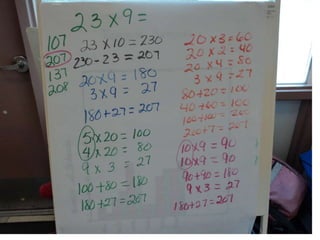 23 x 9 =
107
207
137
208
23 x 10 = 230
230 - 23 = 207
20 x 9 = 180
3 x 9 = 27
180 + 27 = 207
5 x 20 = 100
4 x 20 = 80
9 x 3 = 27
100 + 80 = 180
180 + 27 = 207
20 x 3 = 60
20 x 2 = 40
20 x 4 = 80
3 x 9 = 27
80 + 20 = 100
40 + 60 = 100
100 + 100 = 200
200 + 7 = 207
10 x 9 = 90
10 x 9 = 90
90 + 90 = 180
9 x 3 = 27
180 + 27 = 207